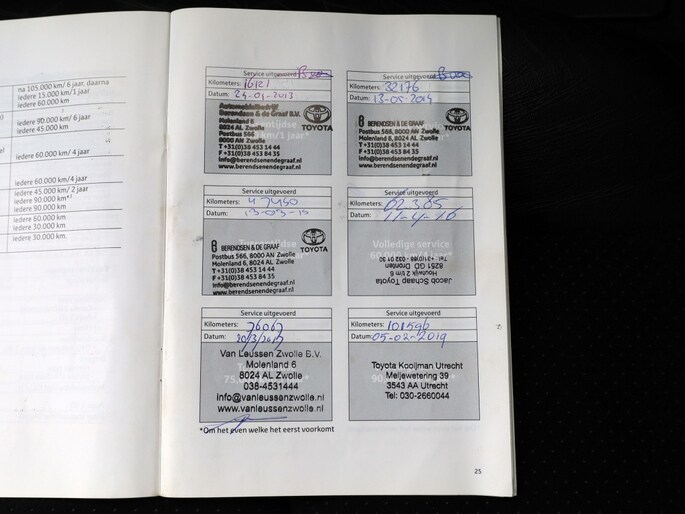 na 105.000 km/ 6 jaar, daarna
iedere 15.000 km/1 jaar
iedere 60.000 km
iedere 90.000 km/ 6 jaar
iedere 45.000 km
iedere 60.000 km/ 4 jaar
iedere 60.000 km/4 jaar
iedere 45.000 km/ 2 jaar
iedere 90.000 km*¹
iedere 90.000 km
iedere 60.000 km
iedere 30.000 km
iedere 30.000 km
Service uitgevoerd
Kilometers: 16121
Datum: 24-01-2013
Automobielbedrijf
Berendsen & de Graaf B.V.
Molenland 6
8024 AL Zwolle
Postbus 566
8000 AN Zwolle
T +31(0)38 453 14 44
F +31(0)38 453 84 35
info@berendsenendegraaf.nl
TOYOTA
Service uitgevoerd
Kilometers: 32176
Datum: 13-05-2014
BERENDSEN & DE GRAAF
Postbus 566, 8000 AN Zwolle
Molenland 6, 8024 AL Zwolle
T +31(0)38 453 14 44
F +31(0)38 453 84 35
info@berendsenendegraaf.nl
www.berendsenendegraaf.nl
TOYOTA
Service uitgevoerd
Kilometers: 47450
Datum: 13-03-15
BERENDSEN & DE GRAAF
Postbus 566, 8000 AN Zwolle
Molenland 6, 8024 AL Zwolle
T +31(0)38 453 14 44
F +31(0)38 453 84 35
info@berendsenendegraaf.nl
www.berendsenendegraaf.nl
TOYOTA
Service uitgevoerd
Kilometers: 62.305
Datum: 11-4-16
Volledige service
Jacob Schaap Toyota
Houtwijk 2 t/m 6
8251 GD Dronten
Service uitgevoerd
Kilometers: 76067
Datum: 20/3/2017
Van Leussen Zwolle B.V.
Molenland 6
8024 AL Zwolle
038-4531444
info@vanleussenzwolle.nl
www.vanleussenzwolle.nl
Service uitgevoerd
Kilometers: 101596
Datum: 05-02-2019
Toyota Kooijman Utrecht
Meijewetering 39
3543 AA Utrecht
Tel: 030-2660044
*Om het even welke het eerst voorkomt
25